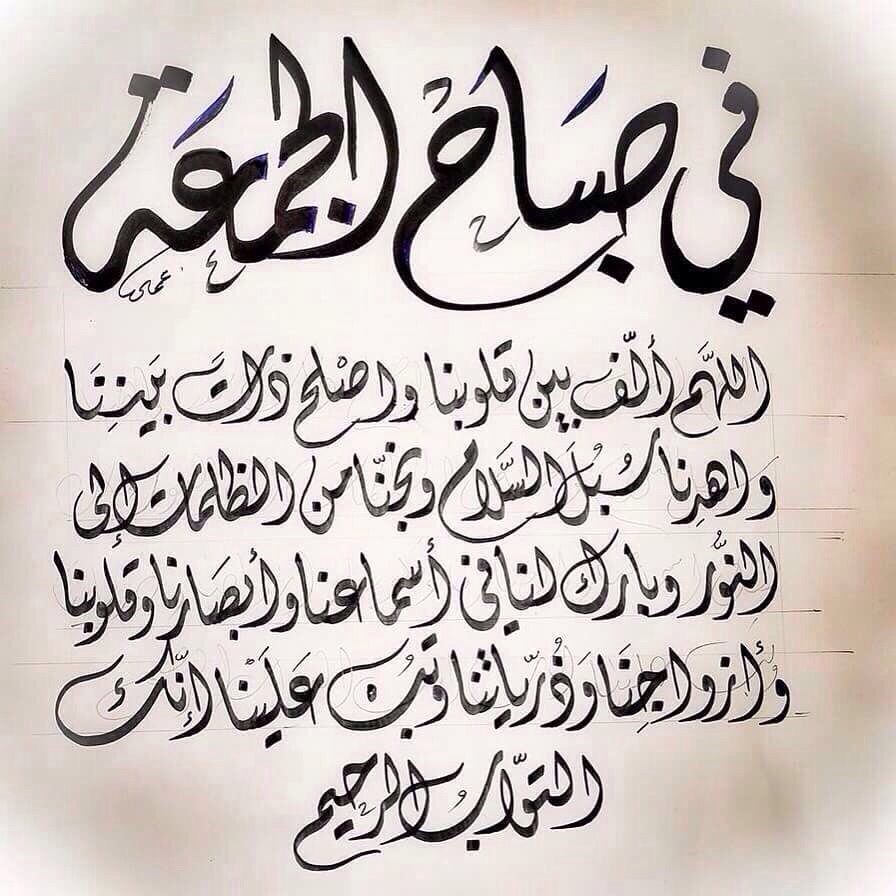 في صباح الجمعة
اللهم ألّف بين قلوبنا واصلح ذات بيننا
واهدنا سبل السّلام ونجّنا من الظلمات إلى
النّور وبارك لنا في أسماعنا وأبصارنا وقلوبنا
وأزواجنا وذرّياتنا وتب علينا إنّك
التوّاب الرحيم